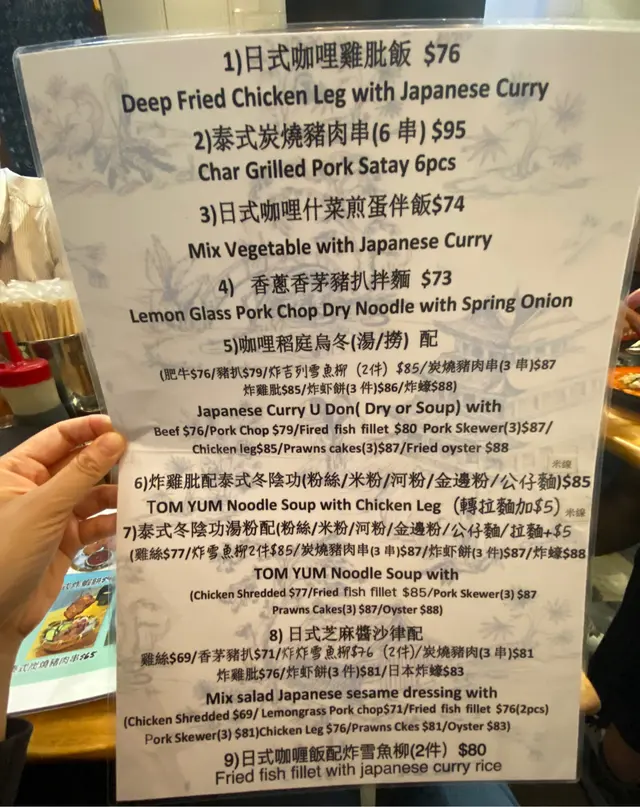 1)日式咖哩雞肶飯 $76
Deep Fried Chicken Leg with Japanese Curry
2)泰式炭燒豬肉串(6 串) $95
Char Grilled Pork Satay 6pcs
3)日式咖哩什菜煎蛋伴飯$74
Mix Vegetable with Japanese Curry
4) 香蔥香茅豬扒拌麵 $73
Lemon Glass Pork Chop Dry Noodle with Spring Onion
5)咖哩稻庭烏冬(湯/撈) 配
(肥牛$76/豬扒$79/炸吉列雪魚柳（2件）$85/炭燒豬肉串(3 串)$87
炸雞肶$85/炸虾餅(3 件)$86/炸蠔$88)
Japanese Curry U Don( Dry or Soup) with
Beef $76/Pork Chop $79/Fired fish fillet $80 Pork Skewer(3)$87/
Chicken leg$85/Prawns cakes(3)$87/Fried oyster $88
米線
6)炸雞肶配泰式冬陰功(粉絲/米粉/河粉/金邊粉/公仔麵)$85
TOM YUM Noodle Soup with Chicken Leg （轉拉麵加$5）米線
7)泰式冬陰功湯粉配(粉絲/米粉/河粉/金邊粉/公仔麵/拉麵+$5
(雞絲$77/炸雪魚柳2件$85/炭燒豬肉串(3 串)$87/炸虾餅(3 件)$87/炸蠔$88
TOM YUM Noodle Soup with
(Chicken Shredded $77/Fried fish fillet $85/Pork Skewer(3) $87
Prawns Cakes(3) $87/Oyster $88)
8) 日式芝麻醬沙律配
雞絲$69/香茅豬扒$71/炸炸雪魚柳$76（2件)/炭燒豬肉(3 串)$81
炸雞肶$76/炸虾餅(3 件)$81/日本炸蠔$83
Mix salad Japanese sesame dressing with
(Chicken Shredded $69/ Lemongrass Pork chop$71/Fried fish fillet $76(2pcs)
Pork Skewer(3) $81)Chicken Leg $76/Prawns Ckes $81/Oyster $83)
9)日式咖喱飯配炸雪魚柳(2件) $80
Fried fish fillet with japanese curry rice
炭燒豬肉串$65